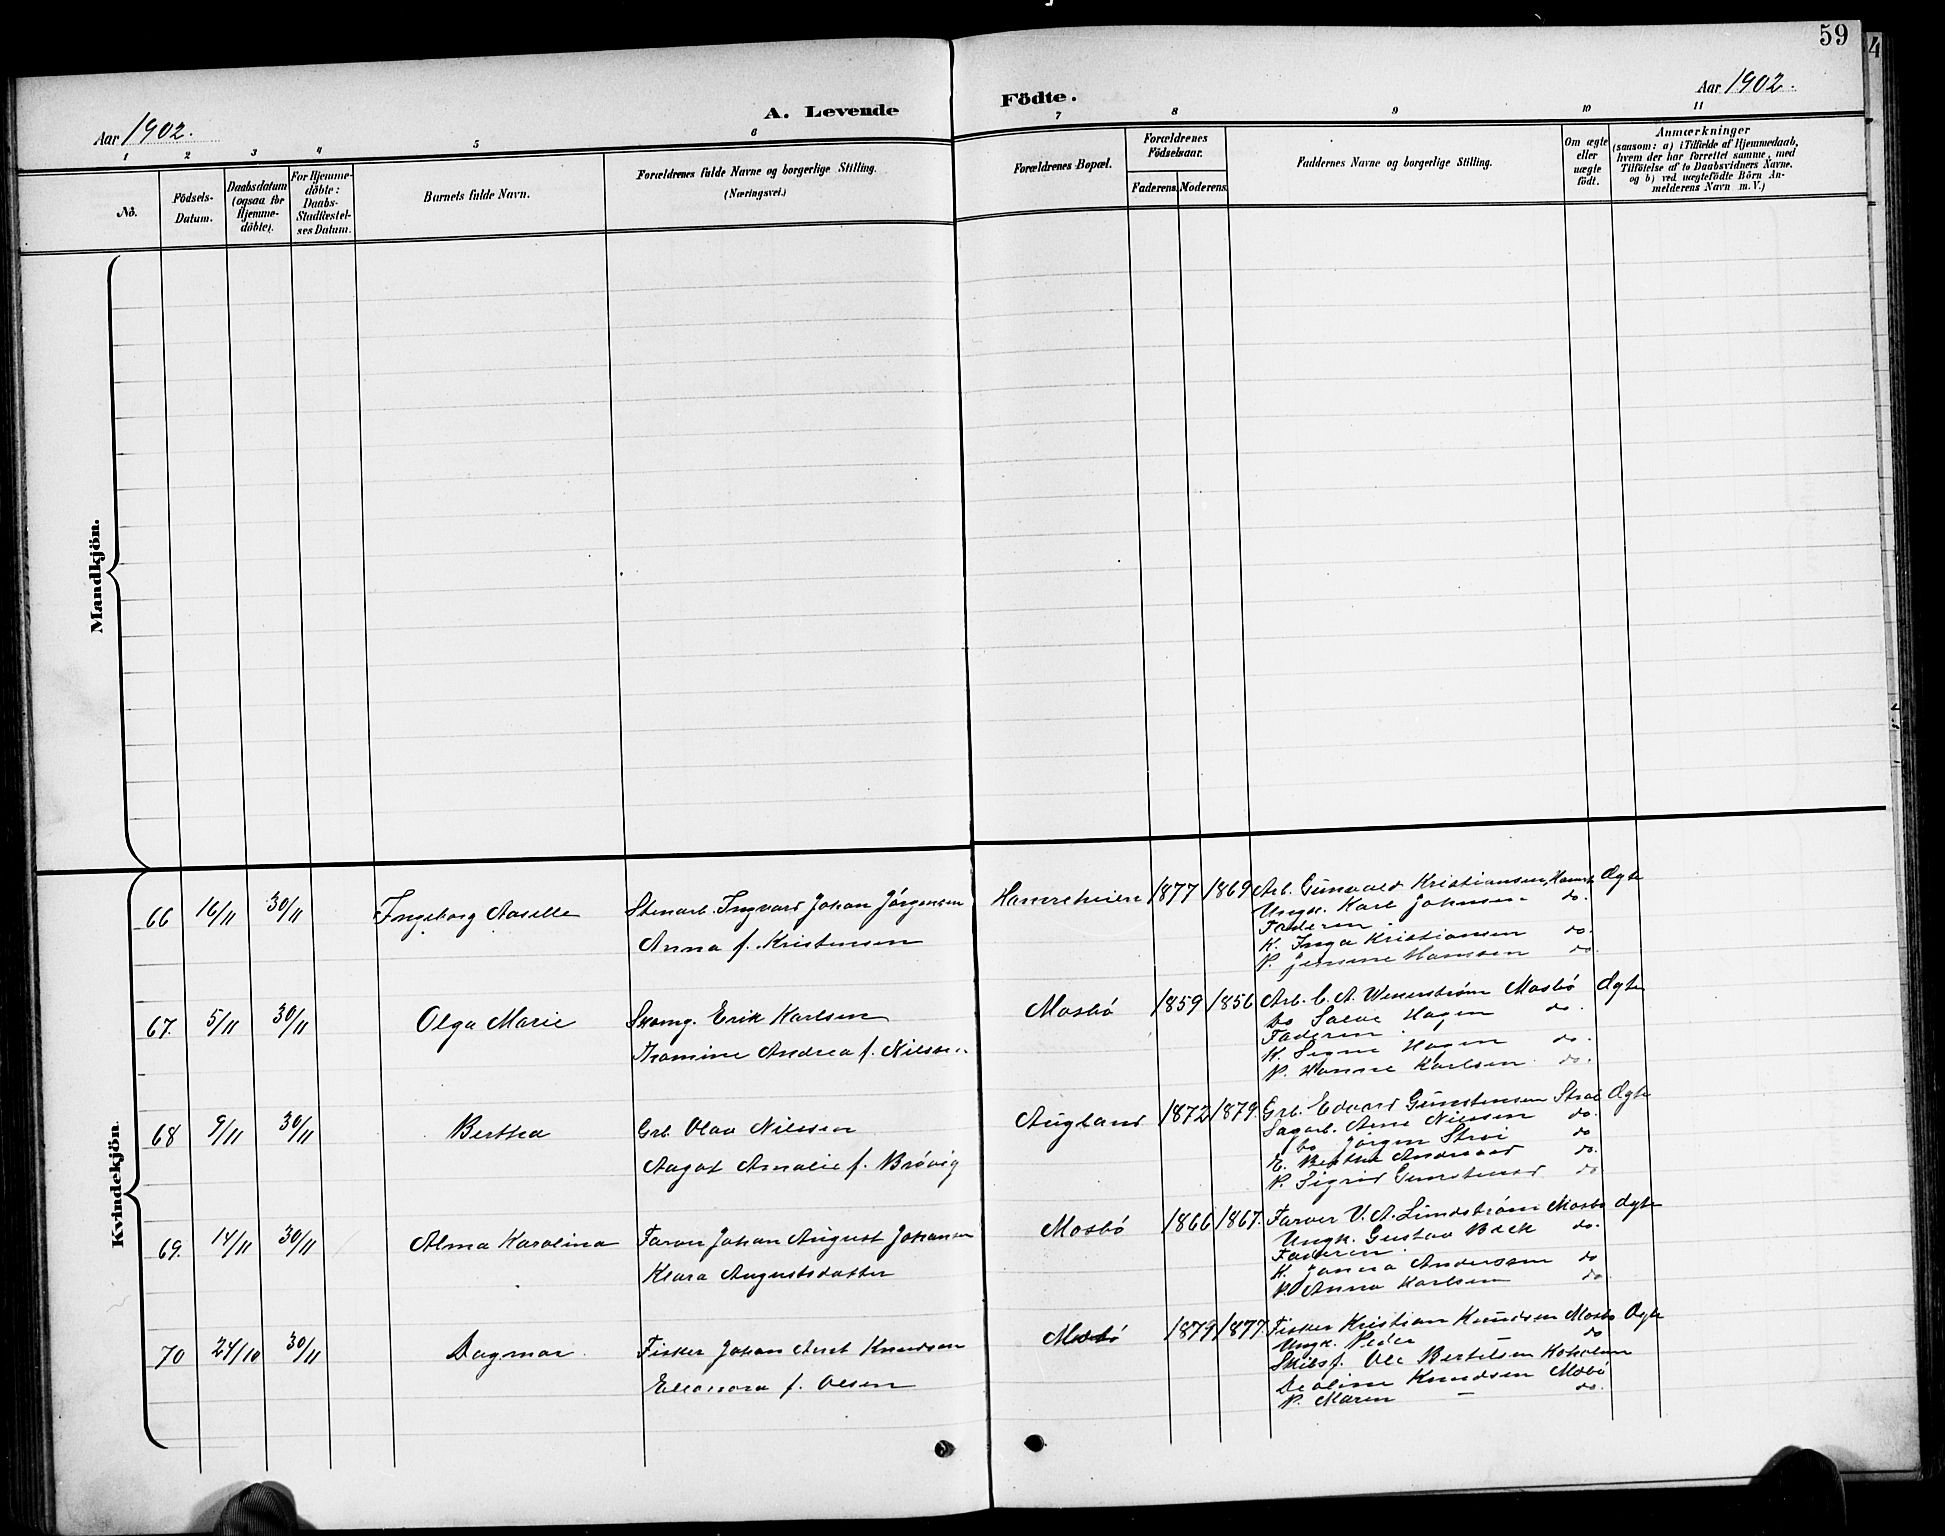 59
Aar 1902.
A. Levende
Födte.
Aar 1902.
1 2 3 4 5 6 7 8 9 10 11
Nō.
Födsels-
Datum.
Daabsdatum
(ogsaa for
Hjemme-
döbte).
For Hjemme-
döbte:
Daabs-
Stadfæstel-
ses Datum.
Barnets fulde Navn.
Forældrenes fulde Navne og borgerlige Stilling.
(Næringsvei.)
Forældrenes Bopæl.
Forældrenes
Födselsaar.
Faderens. Moderens.
Faddernes Navne og borgerlige Stilling.
Om ægte
eller
uægte
født.
Anmærkninger
(saasom: a) i Tilfælde af Hjemmedaab,
hvem der har forrettet samme, med
Tilföielse af to Daabsvidners Navne.
og b) ved uægtefödte Börn An-
melderens Navn m. V.)
Mandkjön.
Kvindekjön.
66 16/11 30/11 Ingeborg Aaselle
Stenarb. Ingvard Johan Jörgensen
Anna f. Kristensen
Hamreheien 1877 1869
Arb. Gunvald Kristiansen, Ægte
Ungk. Karl Johnsen do.
Faderen
K. Inga Kristiansen do.
P. Jensine Hansen do.
67. 5/11 30/11 Olga Marie
Skomg. Erik Karlsen
Andrea f. Nilssen
Mosbö 1859 1856
Arb. C. A. Wennerström Mosbö Ægte
do Salve Hagen do.
Faderen
K. Signe Hagen do.
P. Hanne Karlsen do.
68 9/11 30/11 Berthea
Grb. Olav Nilssen
Aagot Amalie f. Brövig
Augland 1872 1879.
Grb. Edvard Gunstensen Strai Ægte
Sagarb. Arne Nilssen do.
do Jörgen Strai do
E. Berthe do.
P. Sigrid Gunstensen do
69. 14/11 30/11 Alma Karolina
Farver Johan August Johansen
Klara Augustsdatter
Mosbö 1866 1867.
Farver V. A. Lindström Mosbö Ægte
Ungk. Gustav Bäck do.
Faderen.
K. Anderssen do
P. Anna Karlsen do.
70 24/10 30/11 Dagmar
Fisker Johan Knudsen
Eleonora f. Olsen
Mosbö 1879 1877.
Fisker Kristian Knudsen Mosbö Ægte
Ungk. Peder do
Skibsf. Ole Bertelsen
Knudsen Mosbö
P. Maren — do.